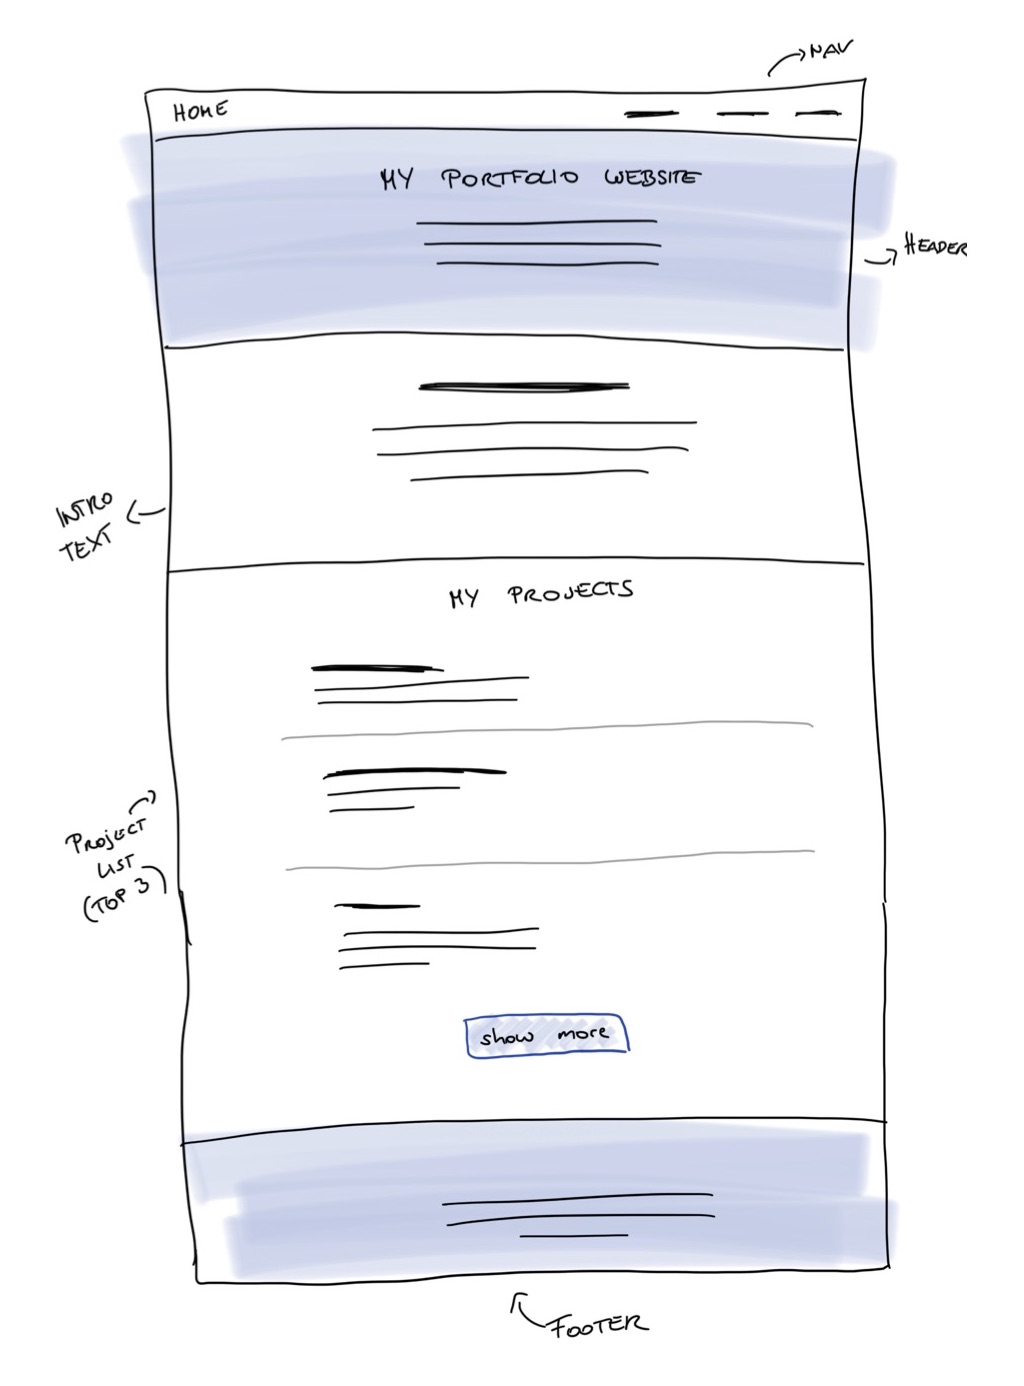 NAV
HOME
MY PORTFOLIO WEBSITE
HEADER
INTRO
TEXT
MY PROJECTS
PROJECT
LIST
(TOP 3
show more
FOOTER